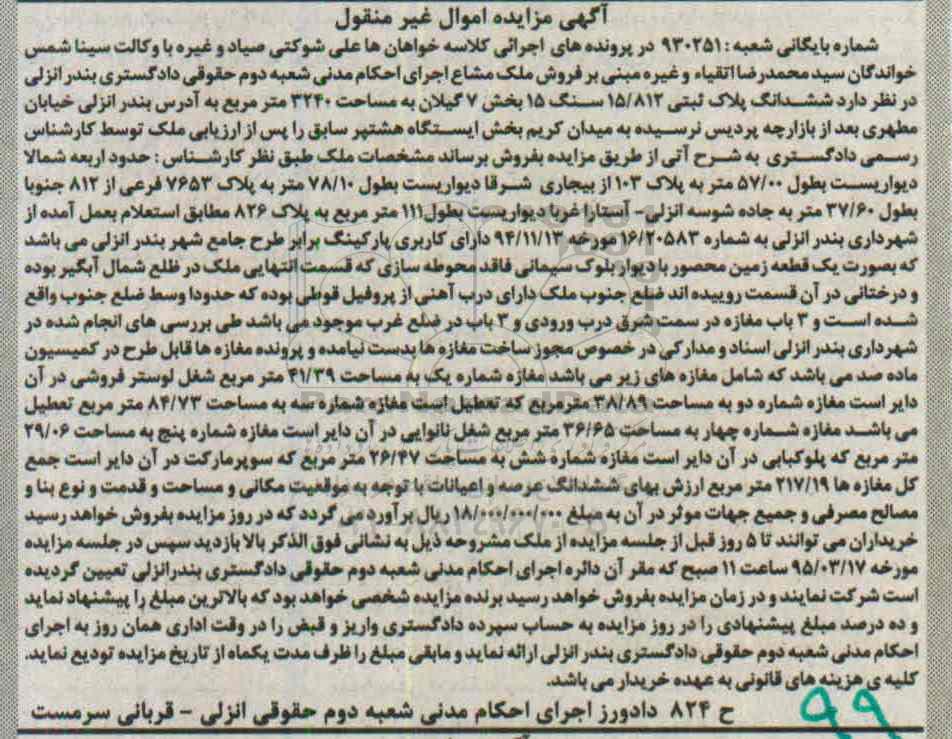 آگهی مزایده اموال غیر منقول
شماره بایگانی شعبه: ۹۳۰۲۵۱ در پرونده های اجرائی کلاسه خواهان ها علی شوکتی صیاد و غیره با وکالت سینا شمس
خواندگان سید محمدرضا اتقیاء و غیره مبنی بر فروش ملک مشاع اجرای احکام مدنی شعبه دوم حقوقی دادگستری بندر انزلی
در نظر دارد ششدانگ پلاک ثبتی ۱۵/۸۱۲ سنگ ۱۵ بخش ۷ گیلان به مساحت ۳۲۴۰ متر مربع به آدرس بندر انزلی خیابان
مطهری بعد از بازارچه پردیس نرسیده به میدان کریم بخش ایستگاه هشتپر سابق را پس از ارزیابی ملک توسط کارشناس
رسمی دادگستری به شرح آتی از طریق مزایده بفروش برساند مشخصات ملک طبق نظر کارشناس: حدود اربعه شمالا
دیواریست بطول ۵۷/۰۰ متر به پلاک ۱۰۳ از بیجاری شرقا دیواریست بطول ۷۸/۱۰ متر به پلاک ۷۶۵۳ فرعی از ۸۱۲ جنوبا
بطول ۳۷/۶۰ متر به جاده شوسه انزلی- آستارا غربا دیواریست بطول۱۱۱ متر مربع به پلاک ۸۲۶ مطابق استعلام بعمل آمده از
شهرداری بندر انزلی به شماره ۱۶/۲۰۵۸۳ مورخه ۹۴/۱۱/۱۳ دارای کاربری پارکینگ برابر طرح جامع شهر بندر انزلی می باشد
که بصورت یک قطعه زمین محصور با دیوار بلوک سیمانی فاقد محوطه سازی که قسمت انتهایی ملک در ظلع شمال آبگیر بوده
و درختانی در آن قسمت روییده اند ضلع جنوب ملک دارای درب آهنی از پروفیل قوطی بوده که حدودا وسط ضلع جنوب واقع
شده است و ۳ باب مغازه در سمت شرق درب ورودی و ۳ باب در ضلع غرب موجود می باشد طی بررسی های انجام شده در
شهرداری بندر انزلی اسناد و مدارکی در خصوص مجوز ساخت مغازه ها بدست نیامده و پرونده مغازه ها قابل طرح در کمیسیون
ماده صد می باشد که شامل مغازه های زیر می باشد مغازه شماره یک به مساحت ۴۱/۳۹ متر مربع شغل لوستر فروشی در آن
دایر است مغازه شماره دو به مساحت ۳۸/۸۹ مترمربع که تعطیل است مغازه شماره سه به مساحت ۸۴/۷۳ متر مربع تعطیل
می باشد مغازه شماره چهار به مساحت ۳۶/۶۵ متر مربع شغل نانوایی در آن دایر است مغازه شماره پنج به مساحت ۲۹/۰۶
متر مربع که پلوکبابی در آن دایر است مغازه شماره شش به مساحت ۲۶/۴۷ متر مربع که سوپرمارکت در آن دایر است جمع
کل مغازه ها ۲۱۷/۱۹ متر مربع ارزش بهای ششدانگ عرصه و اعیانات با توجه به موقعیت مکانی و مساحت و قدمت و نوع بنا و
مصالح مصرفی و جمیع جهات موثر در آن به مبلغ ۱۸/۰۰۰/۰۰۰/۰۰۰ ریال برآورد می گردد که در روز مزایده بفروش خواهد رسید
خریداران می توانند تا ۵ روز قبل از جلسه مزایده از ملک مشروحه ذیل به نشانی فوق الذکر بالا بازدید سپس در جلسه مزایده
مورخه ۹۵/۰۳/۱۷ ساعت ۱۱ صبح که مقر آن دائره اجرای احکام مدنی شعبه دوم حقوقی دادگستری بندرانزلی تعیین گردیده
است شرکت نمایند و در زمان مزایده بفروش خواهد رسید برنده مزایده شخصی خواهد بود که بالاترین مبلغ را پیشنهاد نماید
و ده درصد مبلغ پیشنهادی را در روز مزایده به حساب سپرده دادگستری واریز و قبض را در وقت اداری همان روز به اجرای
احکام مدنی شعبه دوم حقوقی دادگستری بندر انزلی ارائه نماید و مابقی مبلغ را ظرف مدت یکماه از تاریخ مزایده تودیع نماید.
کلیه ی هزینه های قانونی به عهده خریدار می باشد.
ح ۸۲۴ دادورز اجرای احکام مدنی شعبه دوم حقوقی انزلی - قربانی سرمست
۹۹